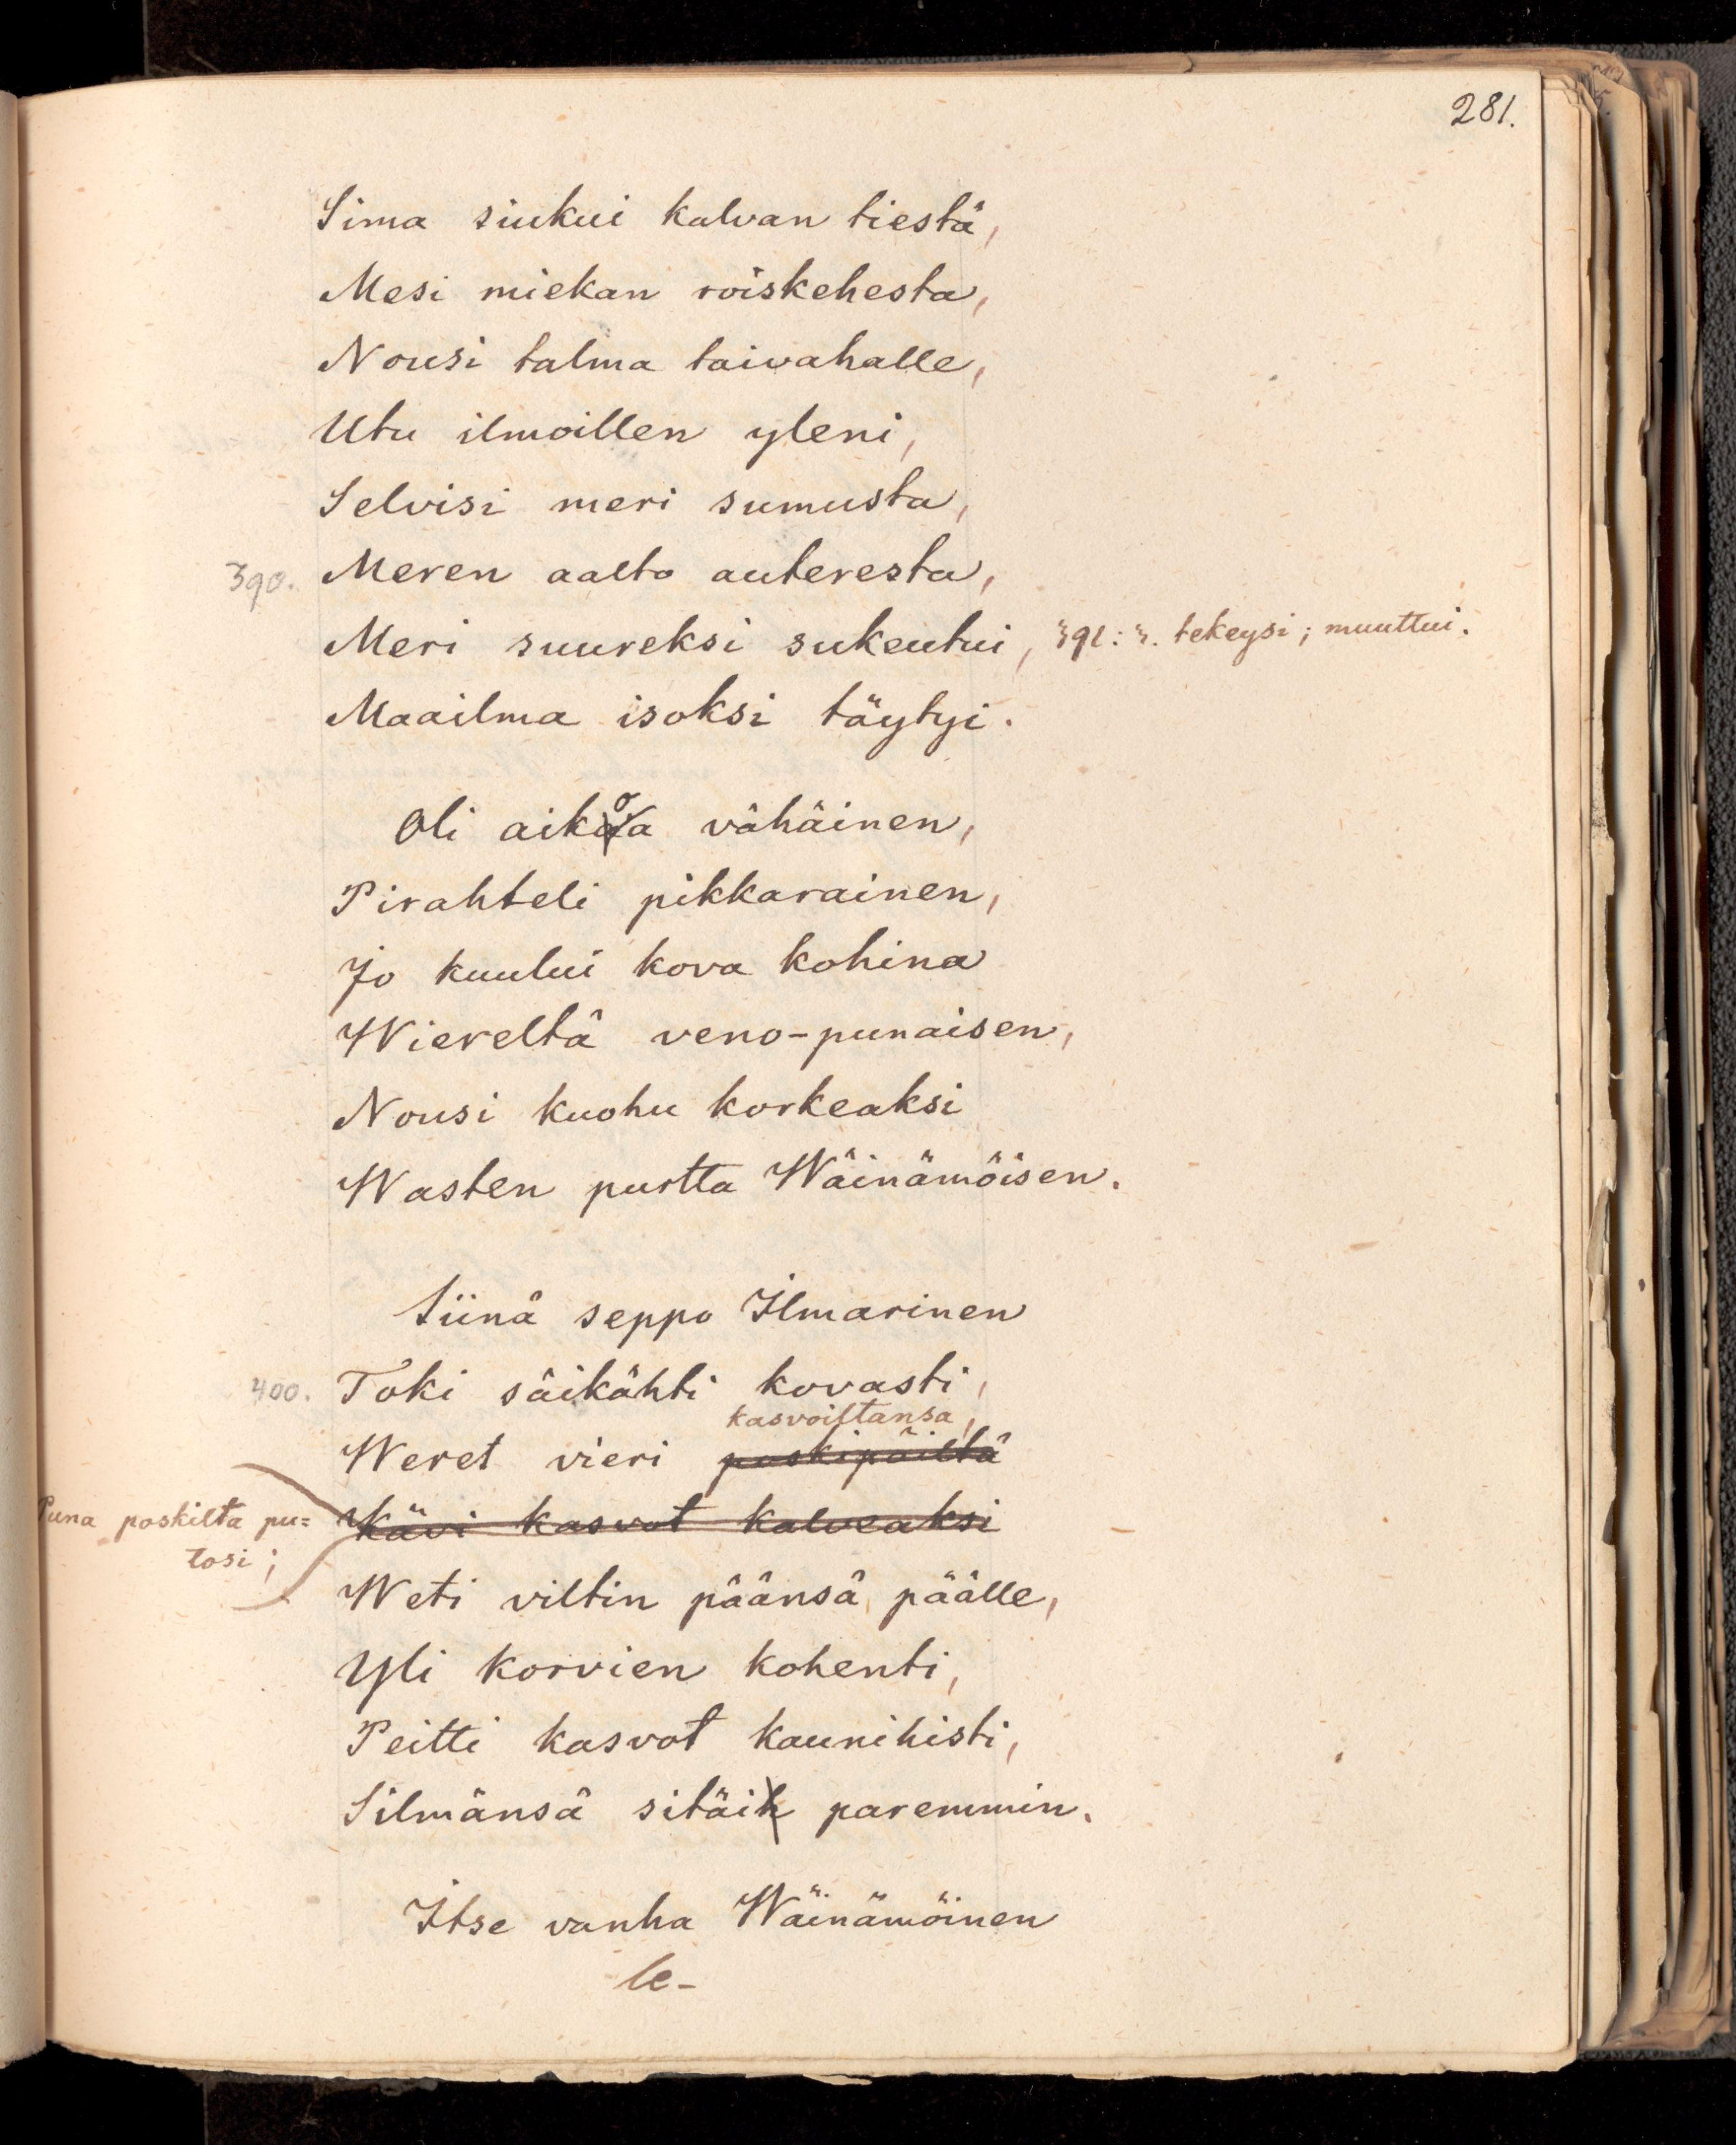 281.
Sima siukui kalvan tiestä,
Mesi miekan roiskehesta,
Nousi talma taivahalle,
Utu ilmoillen yleni,
Selvisi meri sumusta,
390. Meren aalto auteresta,
Meri suureksi sukeutui, 391: 3. tekeysi; muuttui.
Maailma isoksi täytyi.
Oli aikaoa vähäinen,
Pirahteli pikkarainen,
Jo kuului kova kohina
Wiereltä veno-punaisen,
Nousi kuohu korkeaksi
Wasten purtta Wäinämöisen.
Siinä seppo Ilmarinen
400. Toki säikähti kovasti,
kasvoistansa,
Weret vieri poskipäiltä
Puna poskilta pu= Kävi kasvot kalveaksi
tosi;
Weti viltin päänsä päälle,
Yli korvien kohenti,
Peitti kasvot kaunihisti,
Silmänsä sitäik paremmin.
Itse vanha Wäinämöinen
le-